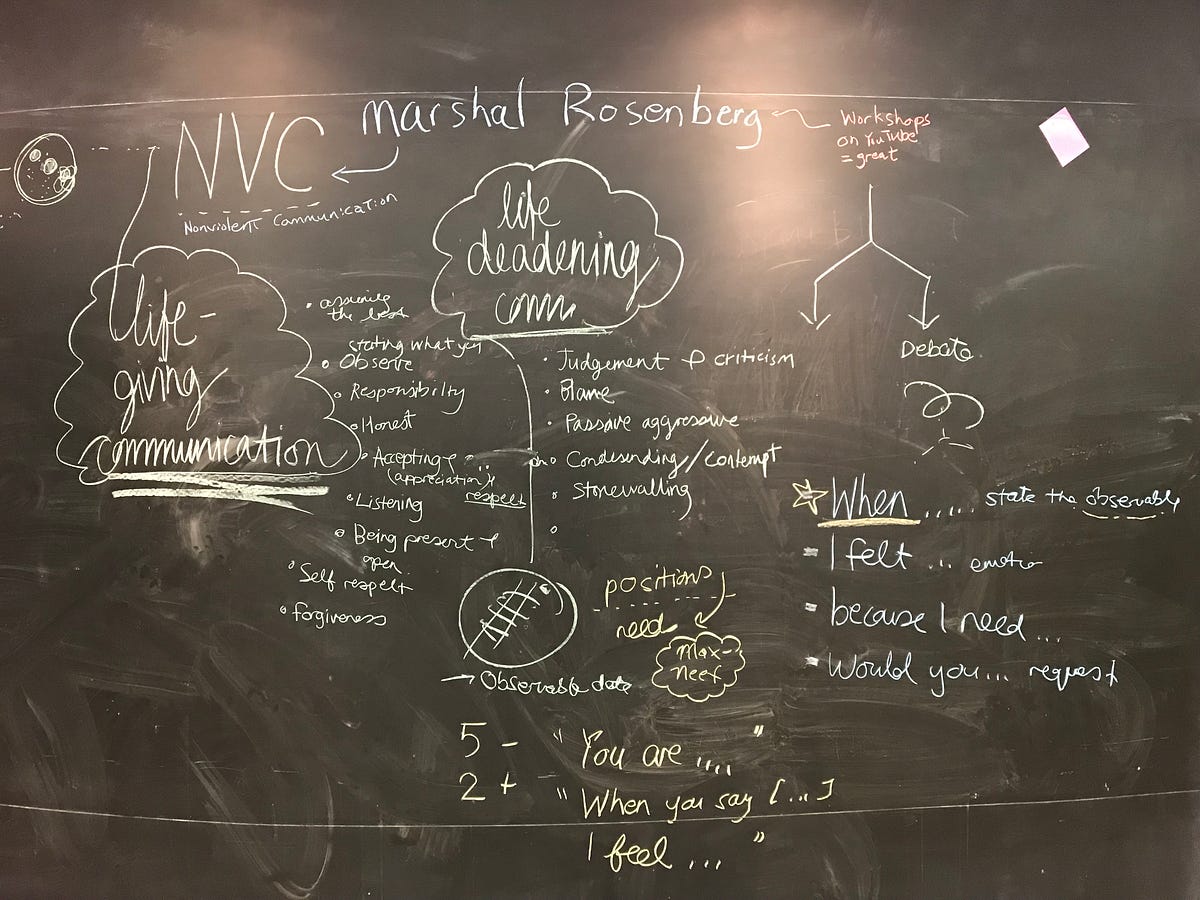 Marshal Rosenberg
NVC
Nonviolent Communication
Workshops
on YouTube
= great
life
deadening
comm.
life-
giving
communication
• assuming
the best
stating what you
• Observe
• Responsibilty
• Honest
• Accepting +
(appreciation)
respect
• Listening
• Being present +
open
• Self respect
• forgiveness
• Judgement + criticism
• Blame
• Passive aggressive
• Condesending/contempt
• Stonewalling
•
Debate
positions
need
Max-
Neef
→ Observable data
When ..... state the observable
= I felt ... emotion
= because I need ...
= Would you... request
5 - " You are .... "
2 + " When you say [...]
I feel ... "